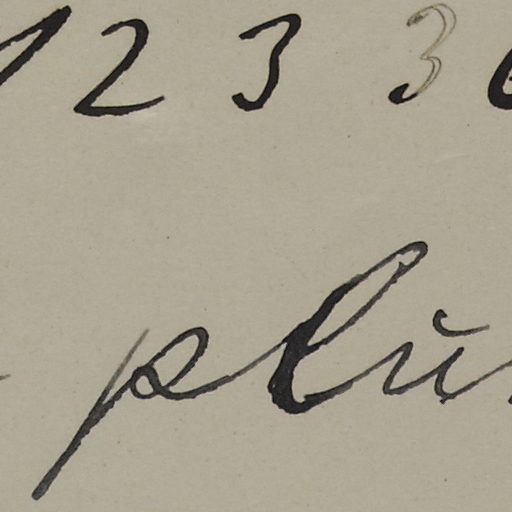 1 2 3 3
plu